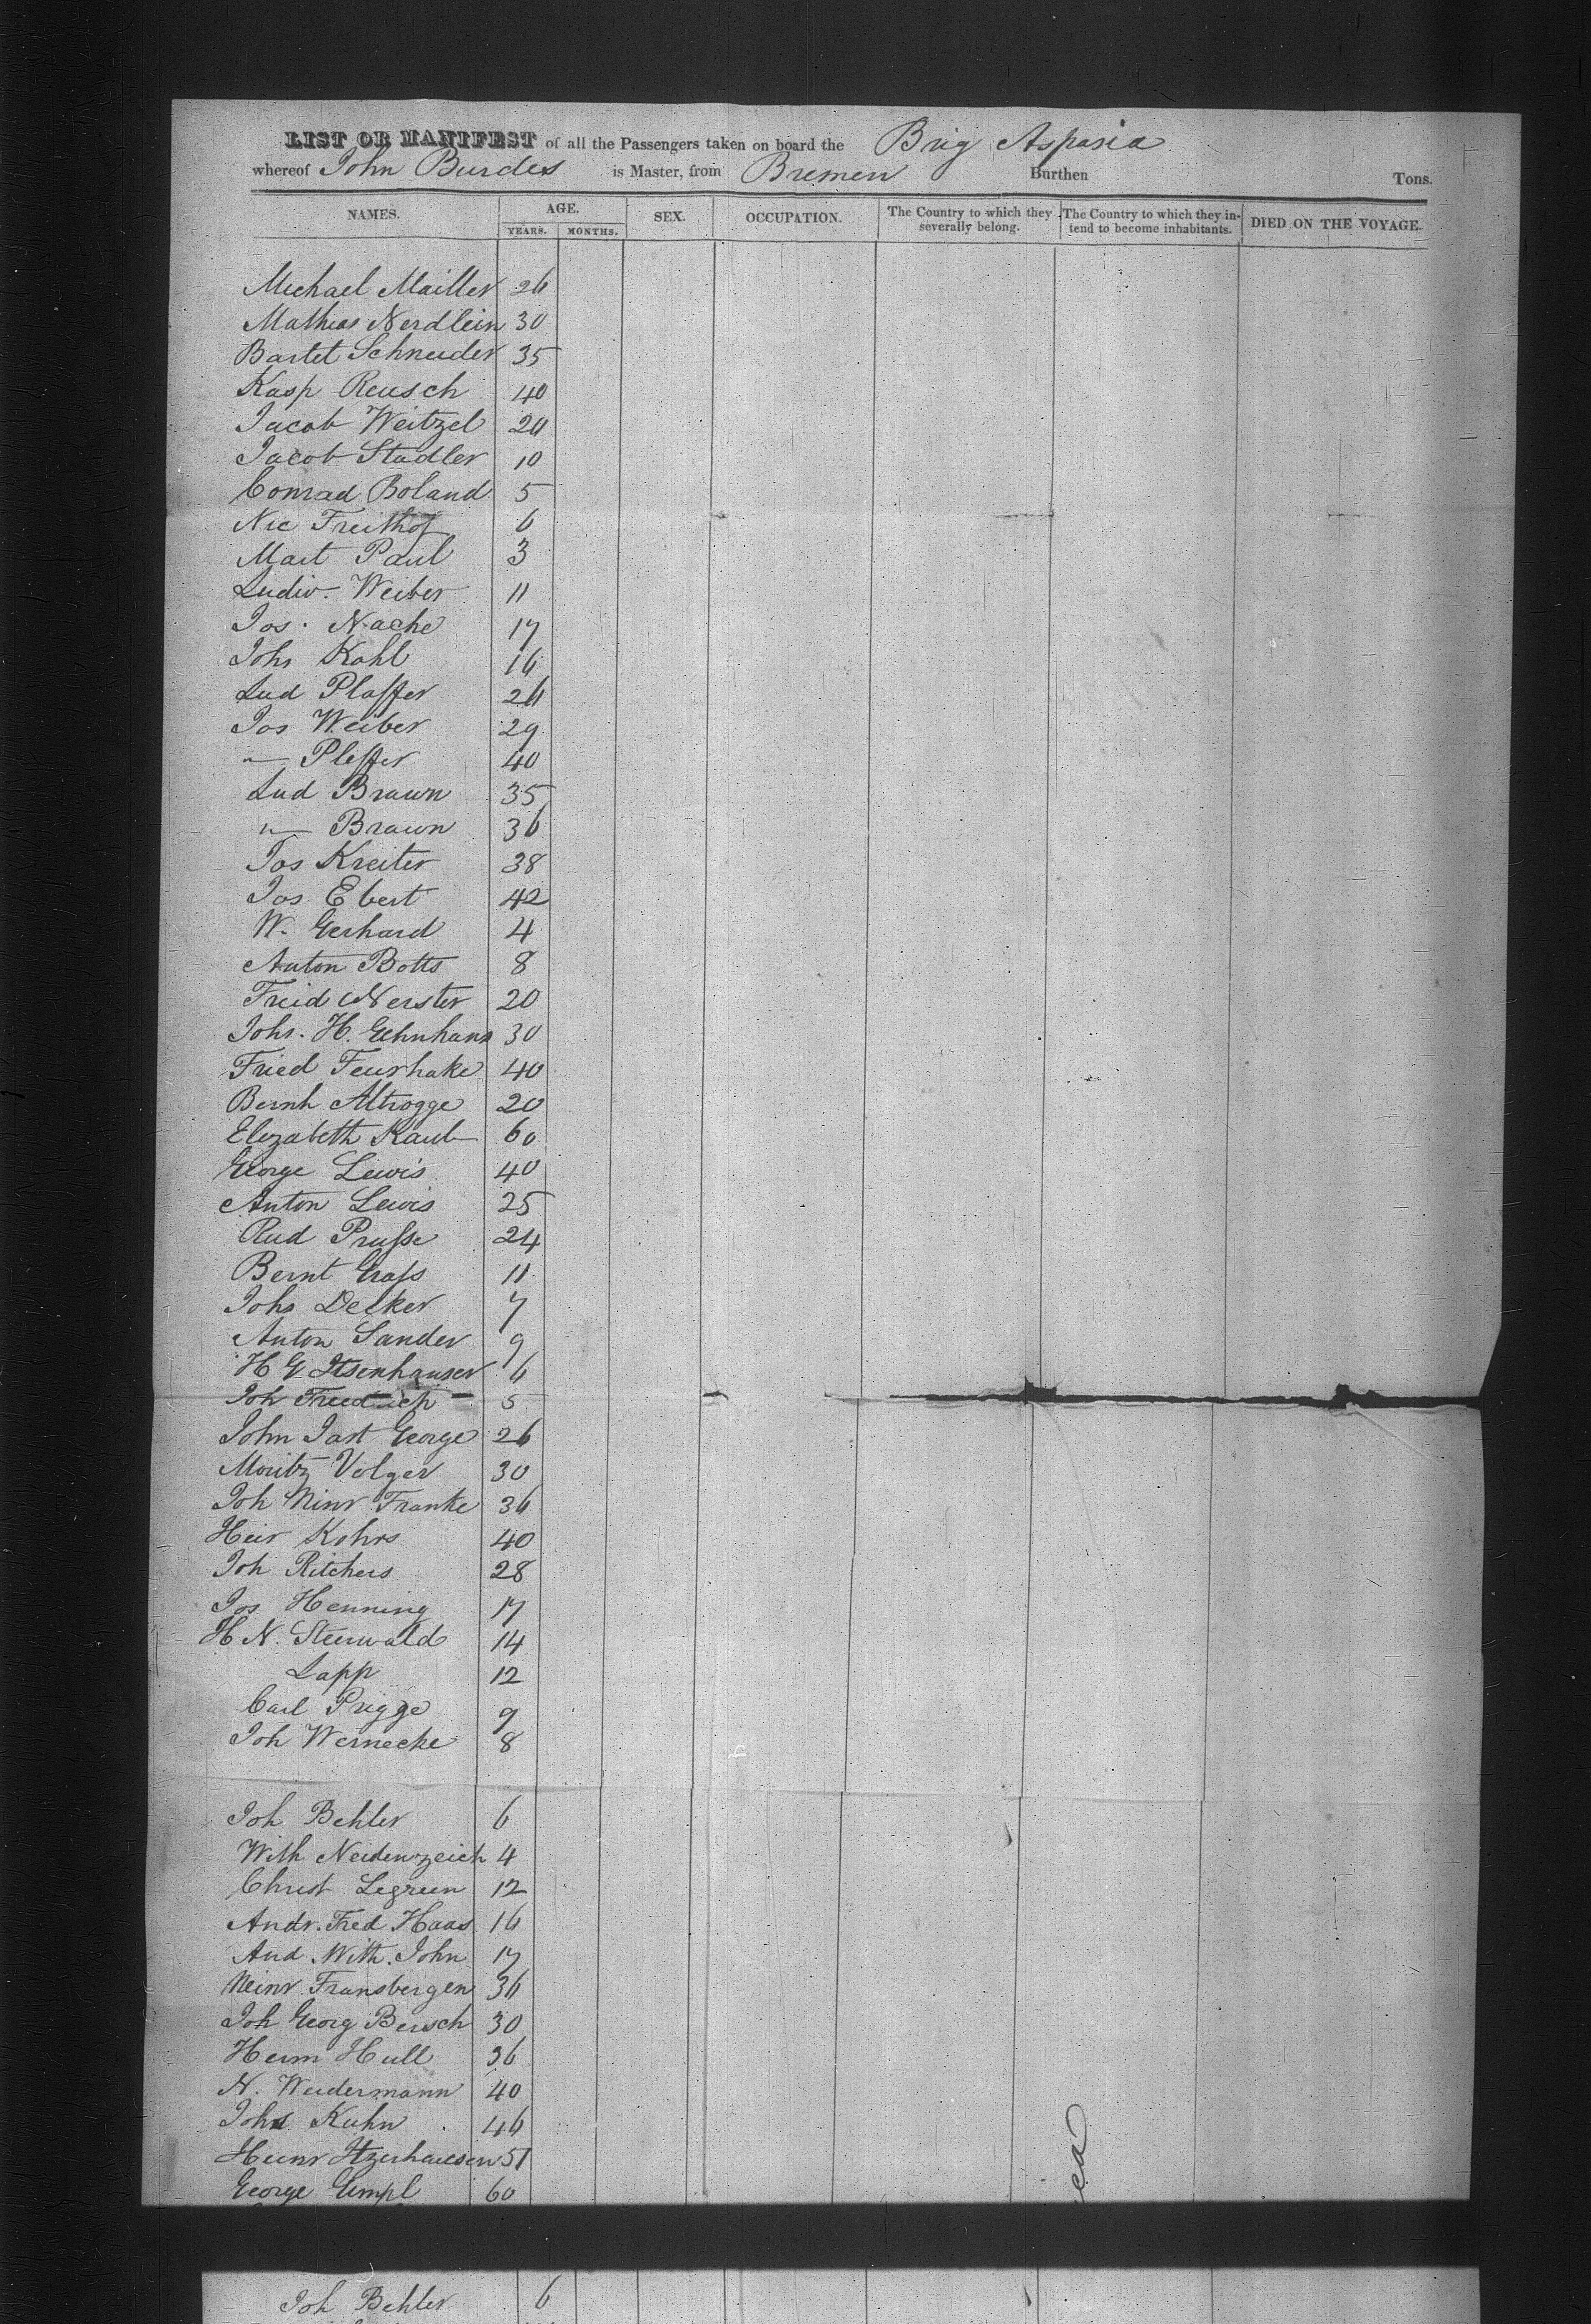 LIST OR MANIFEST of all the Passengers taken on board the Brig Aspasia
whereof John Burdes is Master, from Bremen Burthen Tons.
NAMES. AGE. SEX. OCCUPATION. The Country to which they severally belong. The Country to which they intend to become inhabitants. DIED ON THE VOYAGE.
YEARS. MONTHS.
Michael Mailler 26
Mathias Nerdlein 30
Bartet Schneider 35
Kasp Reusch 40
Jacob Weitzel 20
Jacob Stadler 10
Conrad Boland 5
Nic Freithof 6
Mart Paul 3
Ludw. Weiber 11
Jos. Nache 17
Johs Kohl 16
Lud Plaffer 26
Jos Weiber 29
" — Pleffer 40
Lud Brawn 35
" — Brawn 36
Jos Kreiter 38
Jos Ebert 42
W. Gerhard 4
Anton Botts 8
Freid Nerster 20
Johs. H. Gehnhans 30
Fried Feurhake 40
Bernh Altrogge 20
Elezabeth Kaul 60
George Lewis 40
Anton Lewis 25
Rud Prusse 24
Bernt Grass 11
Johs Decker 7
Anton Sander 9
H G Itsenhauser 6
Joh Freedrich 5
John Jast George 26
Moritz Volger 30
Joh Minr Franke 36
Heir Kohrs 40
Joh Ritchers 28
Jos Henning 17
H N. Steerwald 14
Lapp 12
Carl Prigge 9
Joh Wernecke 8
Joh Behler 6
With Neidenzeich 4
Christ Legreen 12
Andr. Fred Haas 16
And With. John 17
Meinr Fransbergen 36
Joh Georg Bersch 30
Herm Hull 36
N. Weidermann 40
Johs Kuhn 46
Heinr Itzerhausen 51
George Gempl 60
Joh Behler 6